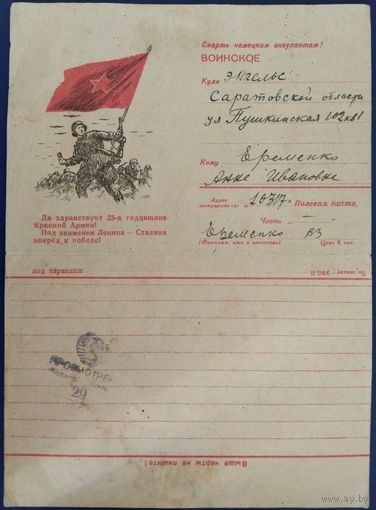 Смерть немецким оккупантам!
ВОИНСКОЕ
Куда Энгельс
Саратовской области
ул Пушкинская 102 кв1
Кому Еременко
Анне Ивановне
Адрес отправителя: 10317 Полевая почта,
Часть —
Еременко ВЗ
(Фамилия, имя и отчество) Цена 6 коп.
Да здравствует 25-я годовщина
Красной Армии!
Под знаменем Ленина — Сталина
вперёд к победе!
ПРОСМОТРЕНО
29
Выше черты не пишите!
www.ay.by